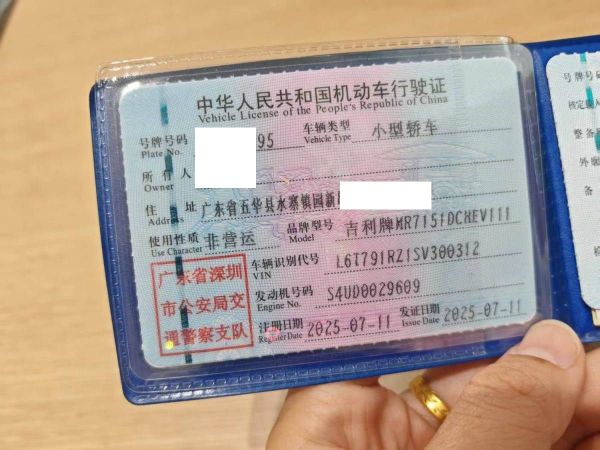 中华人民共和国机动车行驶证
Vehicle License of the People's Republic of China
号牌号码 95 车辆类型 小型轿车
Plate No. Vehicle Type
所有人
Owner
住址 广东省五华县水寨镇园新
Address
使用性质 非营运 品牌型号 吉利牌MR7151DCHEV111
Use Character Model
广东省深圳
市公安局交
通警察支队
车辆识别代号 L6T791RZ1SV300312
VIN
发动机号码 S4UD0029609
Engine No.
注册日期 2025-07-11 发证日期 2025-07-11
Register Date Issue Date
号牌号码
核定载人
整备
外廓
备